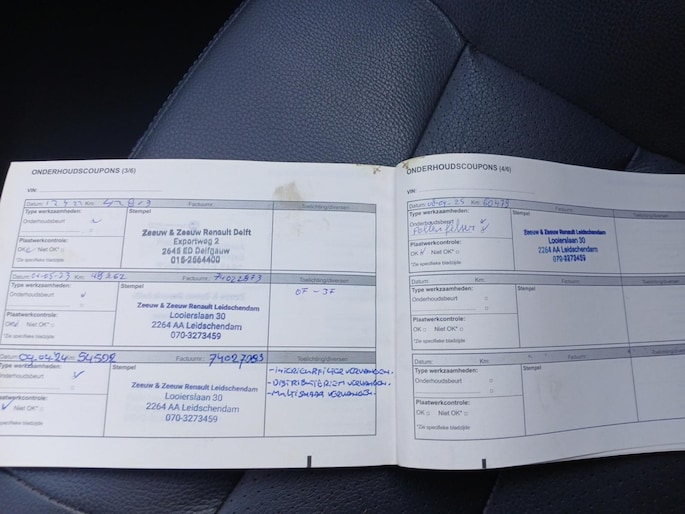 ONDERHOUDSCOUPONS (3/6)
VIN:
Datum: Km: Factuurnr.: Toelichting/diversen
Type werkzaamheden:
Onderhoudsbeurt ✓
Stempel
Zeeuw & Zeeuw Renault Delft
Exportweg 2
2645 ED Delfgauw
015-2564400
Plaatwerkcontrole:
OK Niet OK*
*Zie specifieke bladzijde
Datum: 01-05-23 Km: Factuurnr.: Toelichting/diversen
Type werkzaamheden:
Onderhoudsbeurt ✓
Stempel
Zeeuw & Zeeuw Renault Leidschendam
Looierslaan 30
2264 AA Leidschendam
070-3273459
Plaatwerkcontrole:
OK Niet OK*
*Zie specifieke bladzijde
Datum: 04.04.24 54502 Factuurnr.: Toelichting/diversen
Type werkzaamheden:
Onderhoudsbeurt ✓
Stempel
Zeeuw & Zeeuw Renault Leidschendam
Looierslaan 30
2264 AA Leidschendam
070-3273459
- INTERIEURFILTER VERVANGEN.
- DISTRIBUTIERIEM VERVANGEN.
- MULTISNAAR VERVANGEN.
Plaatwerkcontrole:
✓ Niet OK*
*Zie specifieke bladzijde
ONDERHOUDSCOUPONS (4/6)
VIN:
Datum: Km: 60475 Factuurnr.: Toelichting/diversen
Type werkzaamheden:
Onderhoudsbeurt ✓
Pollenfilter ✓
Stempel
Zeeuw & Zeeuw Renault Leidschendam
Looierslaan 30
2264 AA Leidschendam
070-3273459
Plaatwerkcontrole:
OK Niet OK*
*Zie specifieke bladzijde
Datum: Km: Factuurnr.: Toelichting/diversen
Type werkzaamheden:
Onderhoudsbeurt
Stempel
Plaatwerkcontrole:
OK Niet OK*
*Zie specifieke bladzijde
Datum: Km: Factuurnr.: Toelichting/diversen
Type werkzaamheden:
Onderhoudsbeurt
Stempel
Plaatwerkcontrole:
OK Niet OK*
*Zie specifieke bladzijde